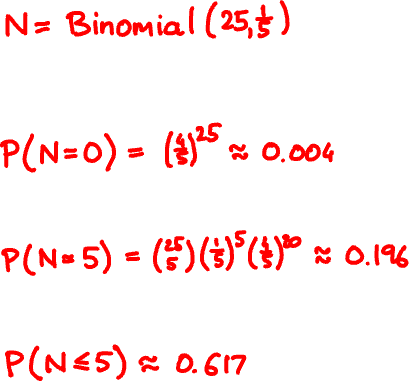 N = Binomial (25, 1/5)
P(N=0) = (4/5)^25 ≈ 0.004
P(N=5) = (25 5)(1/5)^5 (4/5)^20 ≈ 0.196
P(N≤5) ≈ 0.617